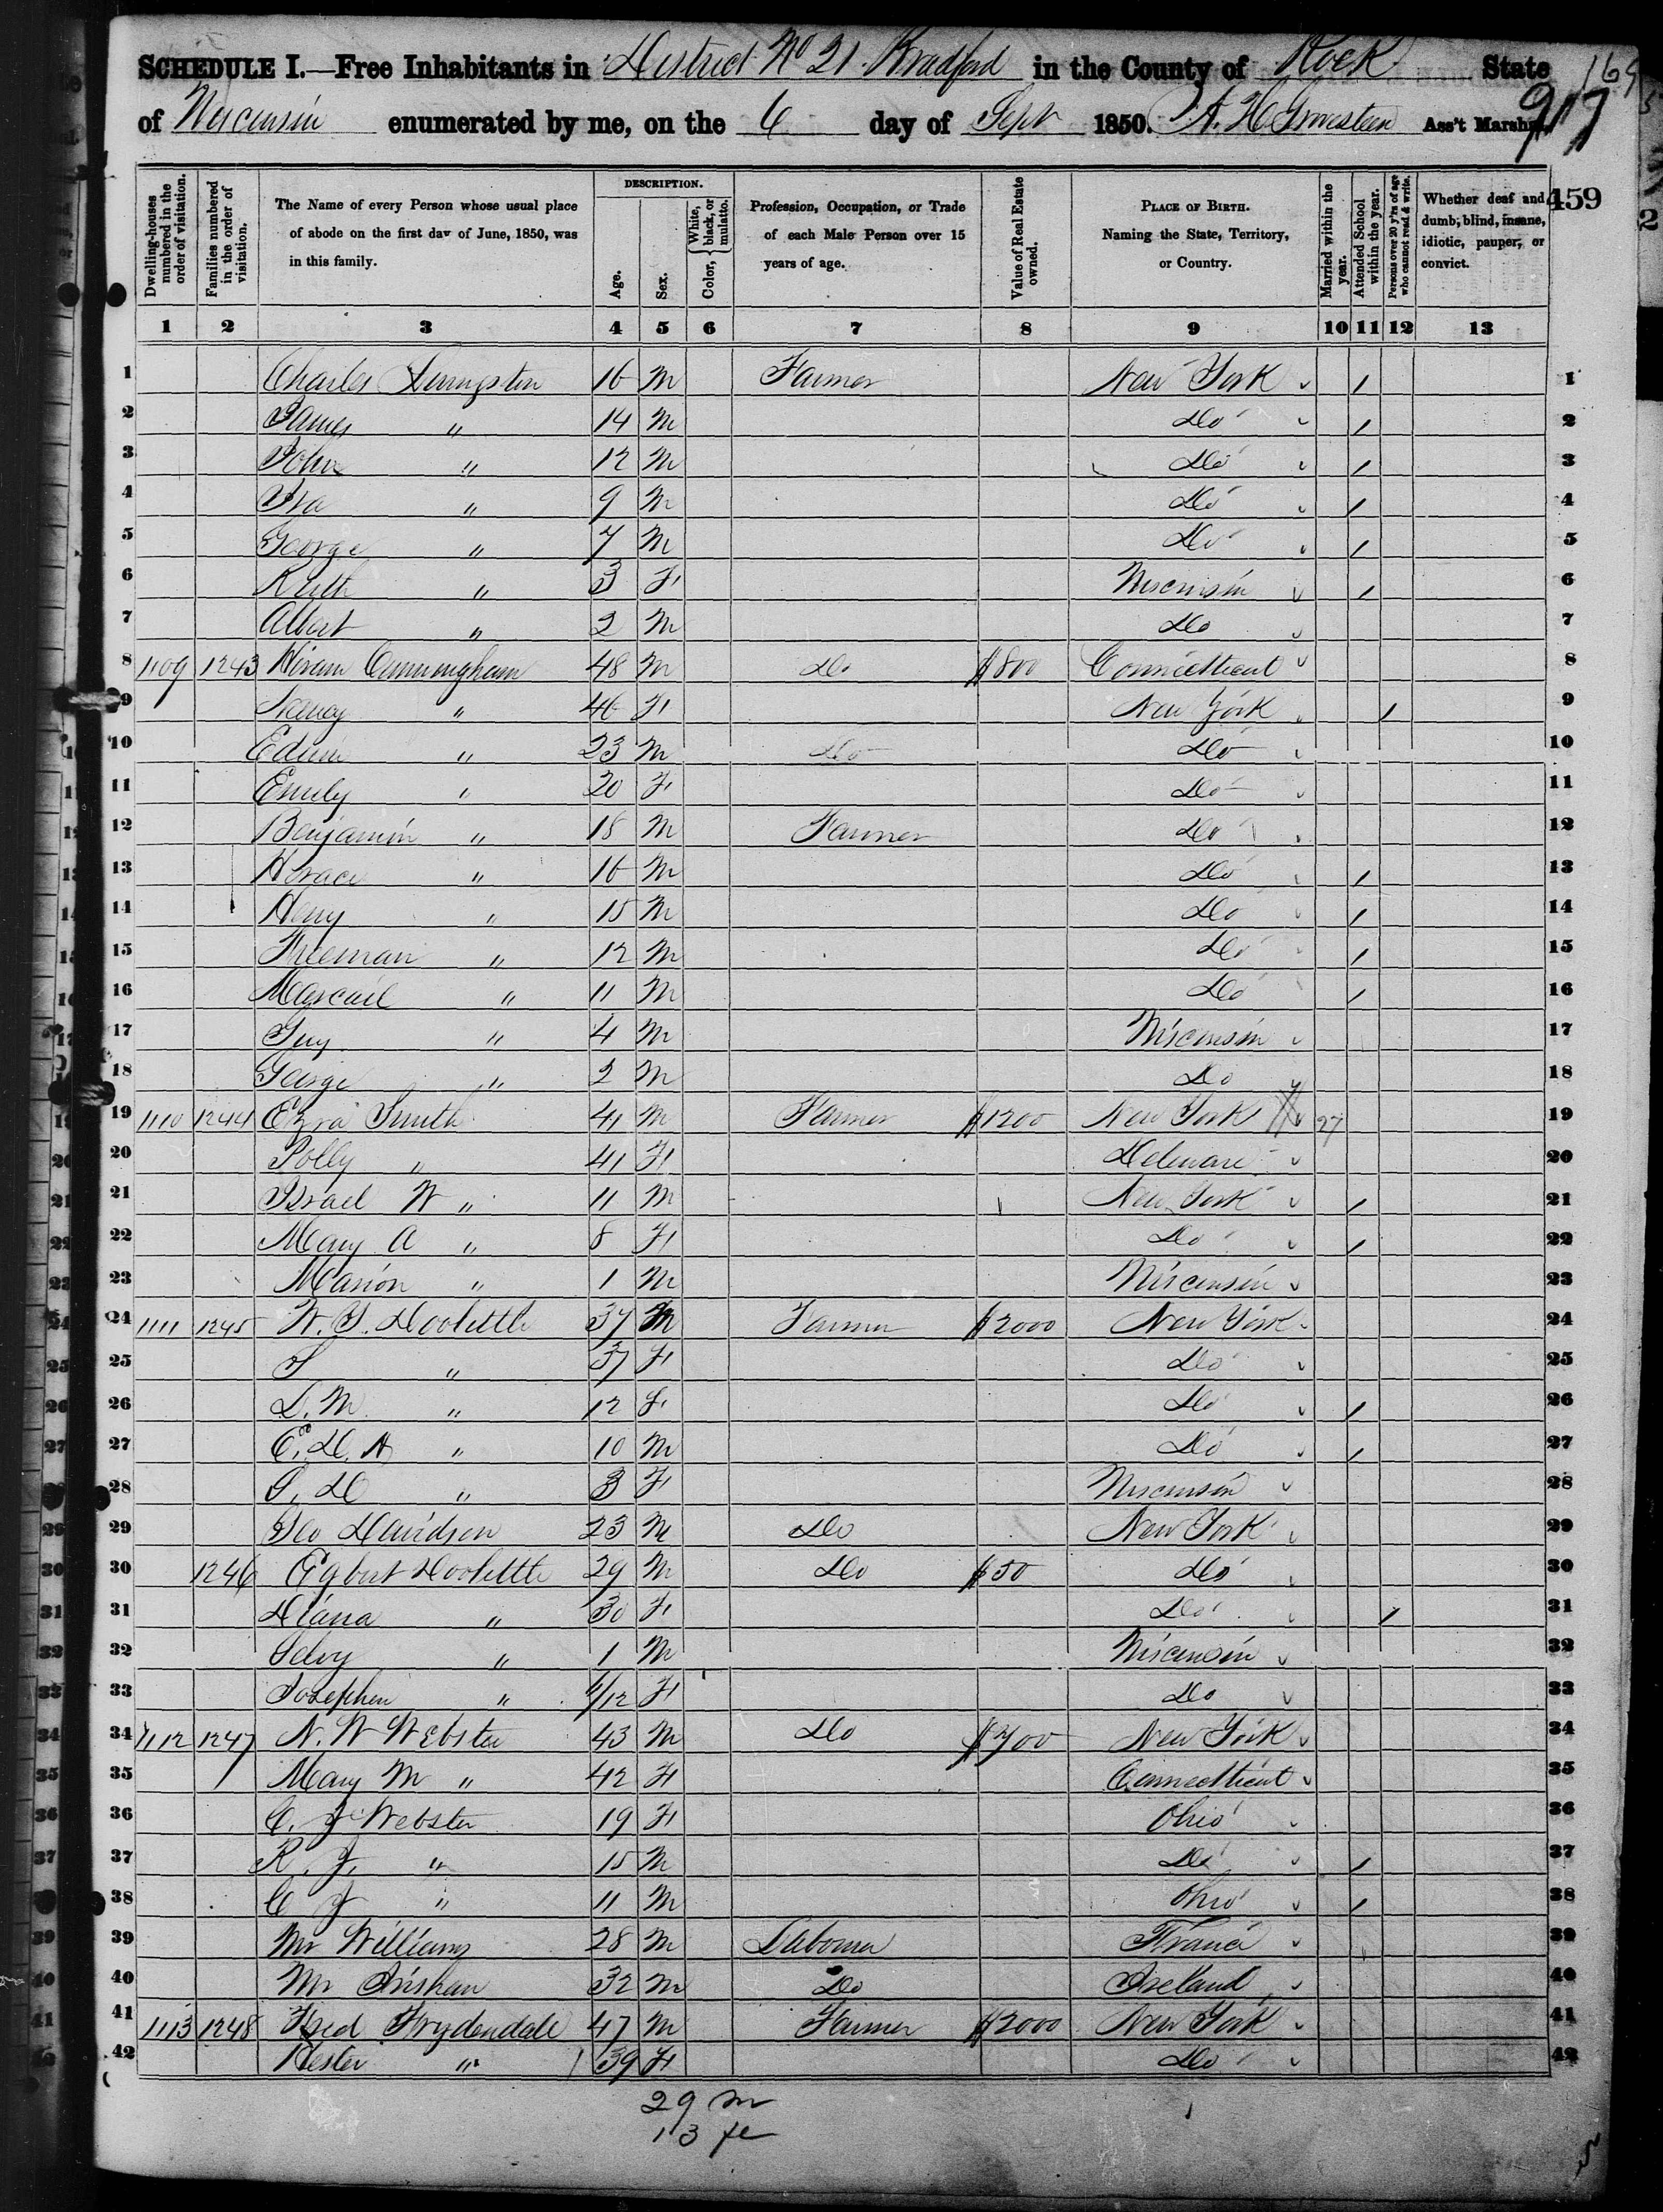 SCHEDULE I.—Free Inhabitants in District No 21 Bradford in the County of Rock State
of Wisconsin enumerated by me, on the 6 day of Sept 1850. Ass't Marshal.
917
459
Dwelling-houses numbered in the order of visitation.
Families numbered in the order of visitation.
The Name of every Person whose usual place of abode on the first day of June, 1850, was in this family.
DESCRIPTION.
Age.
Sex.
Color, White, black, or mulatto.
Profession, Occupation, or Trade of each Male Person over 15 years of age.
Value of Real Estate owned.
PLACE OF BIRTH. Naming the State, Territory, or Country.
Married within the year.
Attended School within the year.
Persons over 20 y'rs of age who cannot read & write.
Whether deaf and dumb, blind, insane, idiotic, pauper, or convict.
1 2 3 4 5 6 7 8 9 10 11 12 13
1 Charles Livingston 16 M Farmer New York / 1
2 James " 14 M Do / 2
3 John " 12 M Do / 3
4 Ira " 9 M Do / 4
5 George " 7 M Do / 5
6 Ruth " 3 F Wisconsin / 6
7 Albert " 2 M Do 7
8 1109 1243 Hiram Cunningham 48 M Do $800 Connecticut 8
9 Nancy " 46 F New York / 9
10 Edwin " 23 M Do Do 10
11 Emily " 20 F Do 11
12 Benjamin " 18 M Farmer Do 12
13 Horace " 16 M Do / 13
14 Henry " 15 M Do / 14
15 Freeman " 12 M Do / 15
16 " 11 M Do / 16
17 Guy " 4 M Wisconsin 17
18 George " 2 M Do 18
19 1110 1244 Ezra Smith 41 M Farmer $1200 New York 27 19
20 Polly " 41 F Deleware 20
21 Israel W " 11 M New York / 21
22 Mary A " 8 F Do / 22
23 Marion " 1 M Wisconsin 23
24 1111 1245 W. Doolittle 37 M Farmer $2000 New York 24
25 S " 37 F Do 25
26 L. M. " 12 F Do / 26
27 E. D. A " 10 M Do / 27
28 S. D " 3 F Wisconsin 28
29 Geo Davidson 23 M Do New York 29
30 1246 Egbert Doolittle 29 M Do $50 Do 30
31 Diana " 30 F Do / 31
32 " 1 M Wisconsin 32
33 Josephin " /12 F Do 33
34 1112 1247 N. W Webster 43 M Do $700 New York 34
35 Mary M " 42 F Connecticut 35
36 C. J Webster 19 F Ohio 36
37 R. J. " 15 M Do / 37
38 C J " 11 M Ohio / 38
39 Mr Williams 28 M Laborer France 39
40 Mr 32 M Do Ireland 40
41 1113 1248 Fred Frydendale 47 M Farmer $2000 New York 41
42 Hester " 39 F Do 42
29 m
13 fe